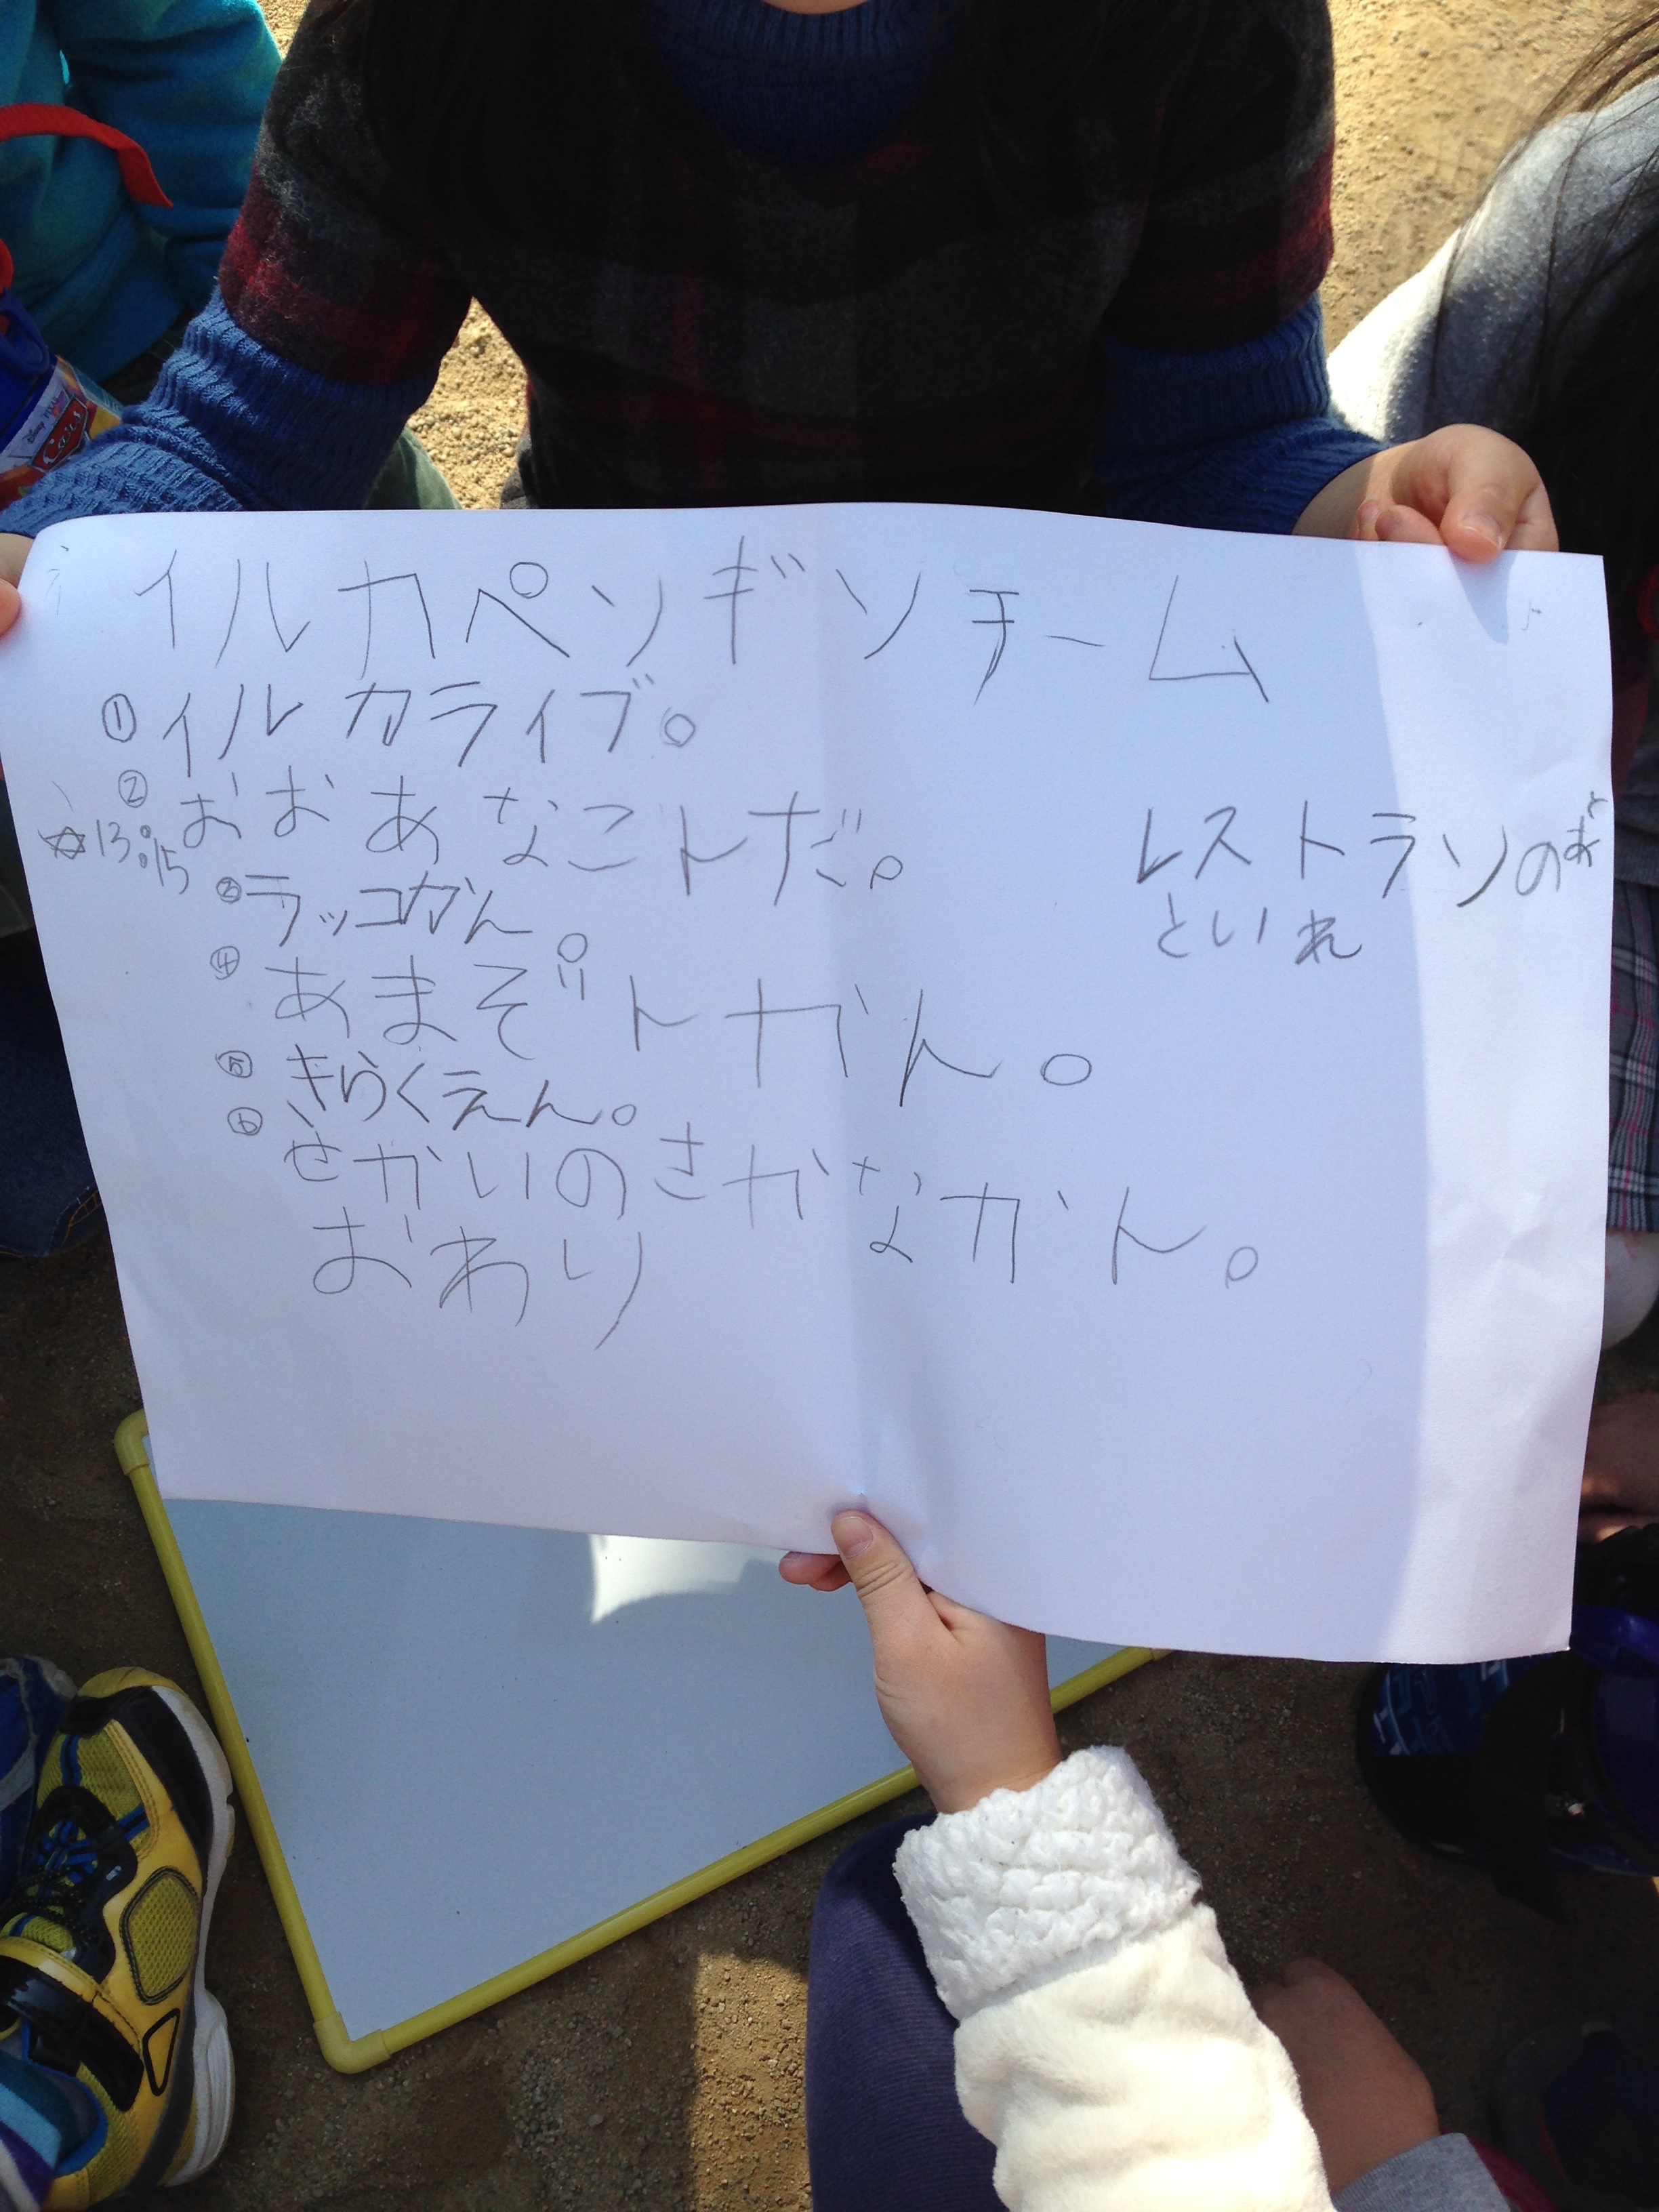 イルカペンギンチーム
①イルカライブ。
②おおあなごトだ。
☆13:15
③ラッコかん。
④あまぞんかん。
⑤きらくえん。
⑥せかいのさかなかん。
おわり
レストランの
といれ
Disney
Cars